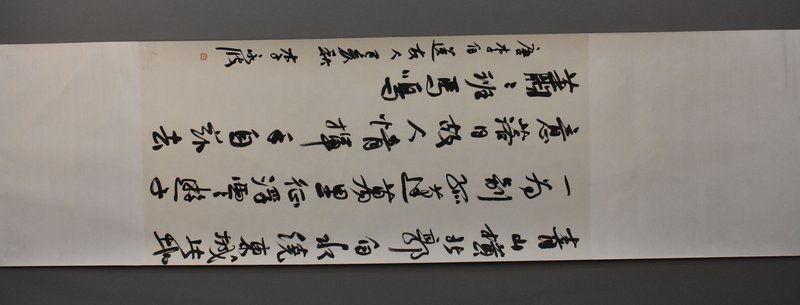 青山橫北郭白水繞東城此地
一為別孤蓬萬里征浮雲遊子
意落日故人情揮手自茲去
蕭々班馬鳴
唐李白送友人 秋 李